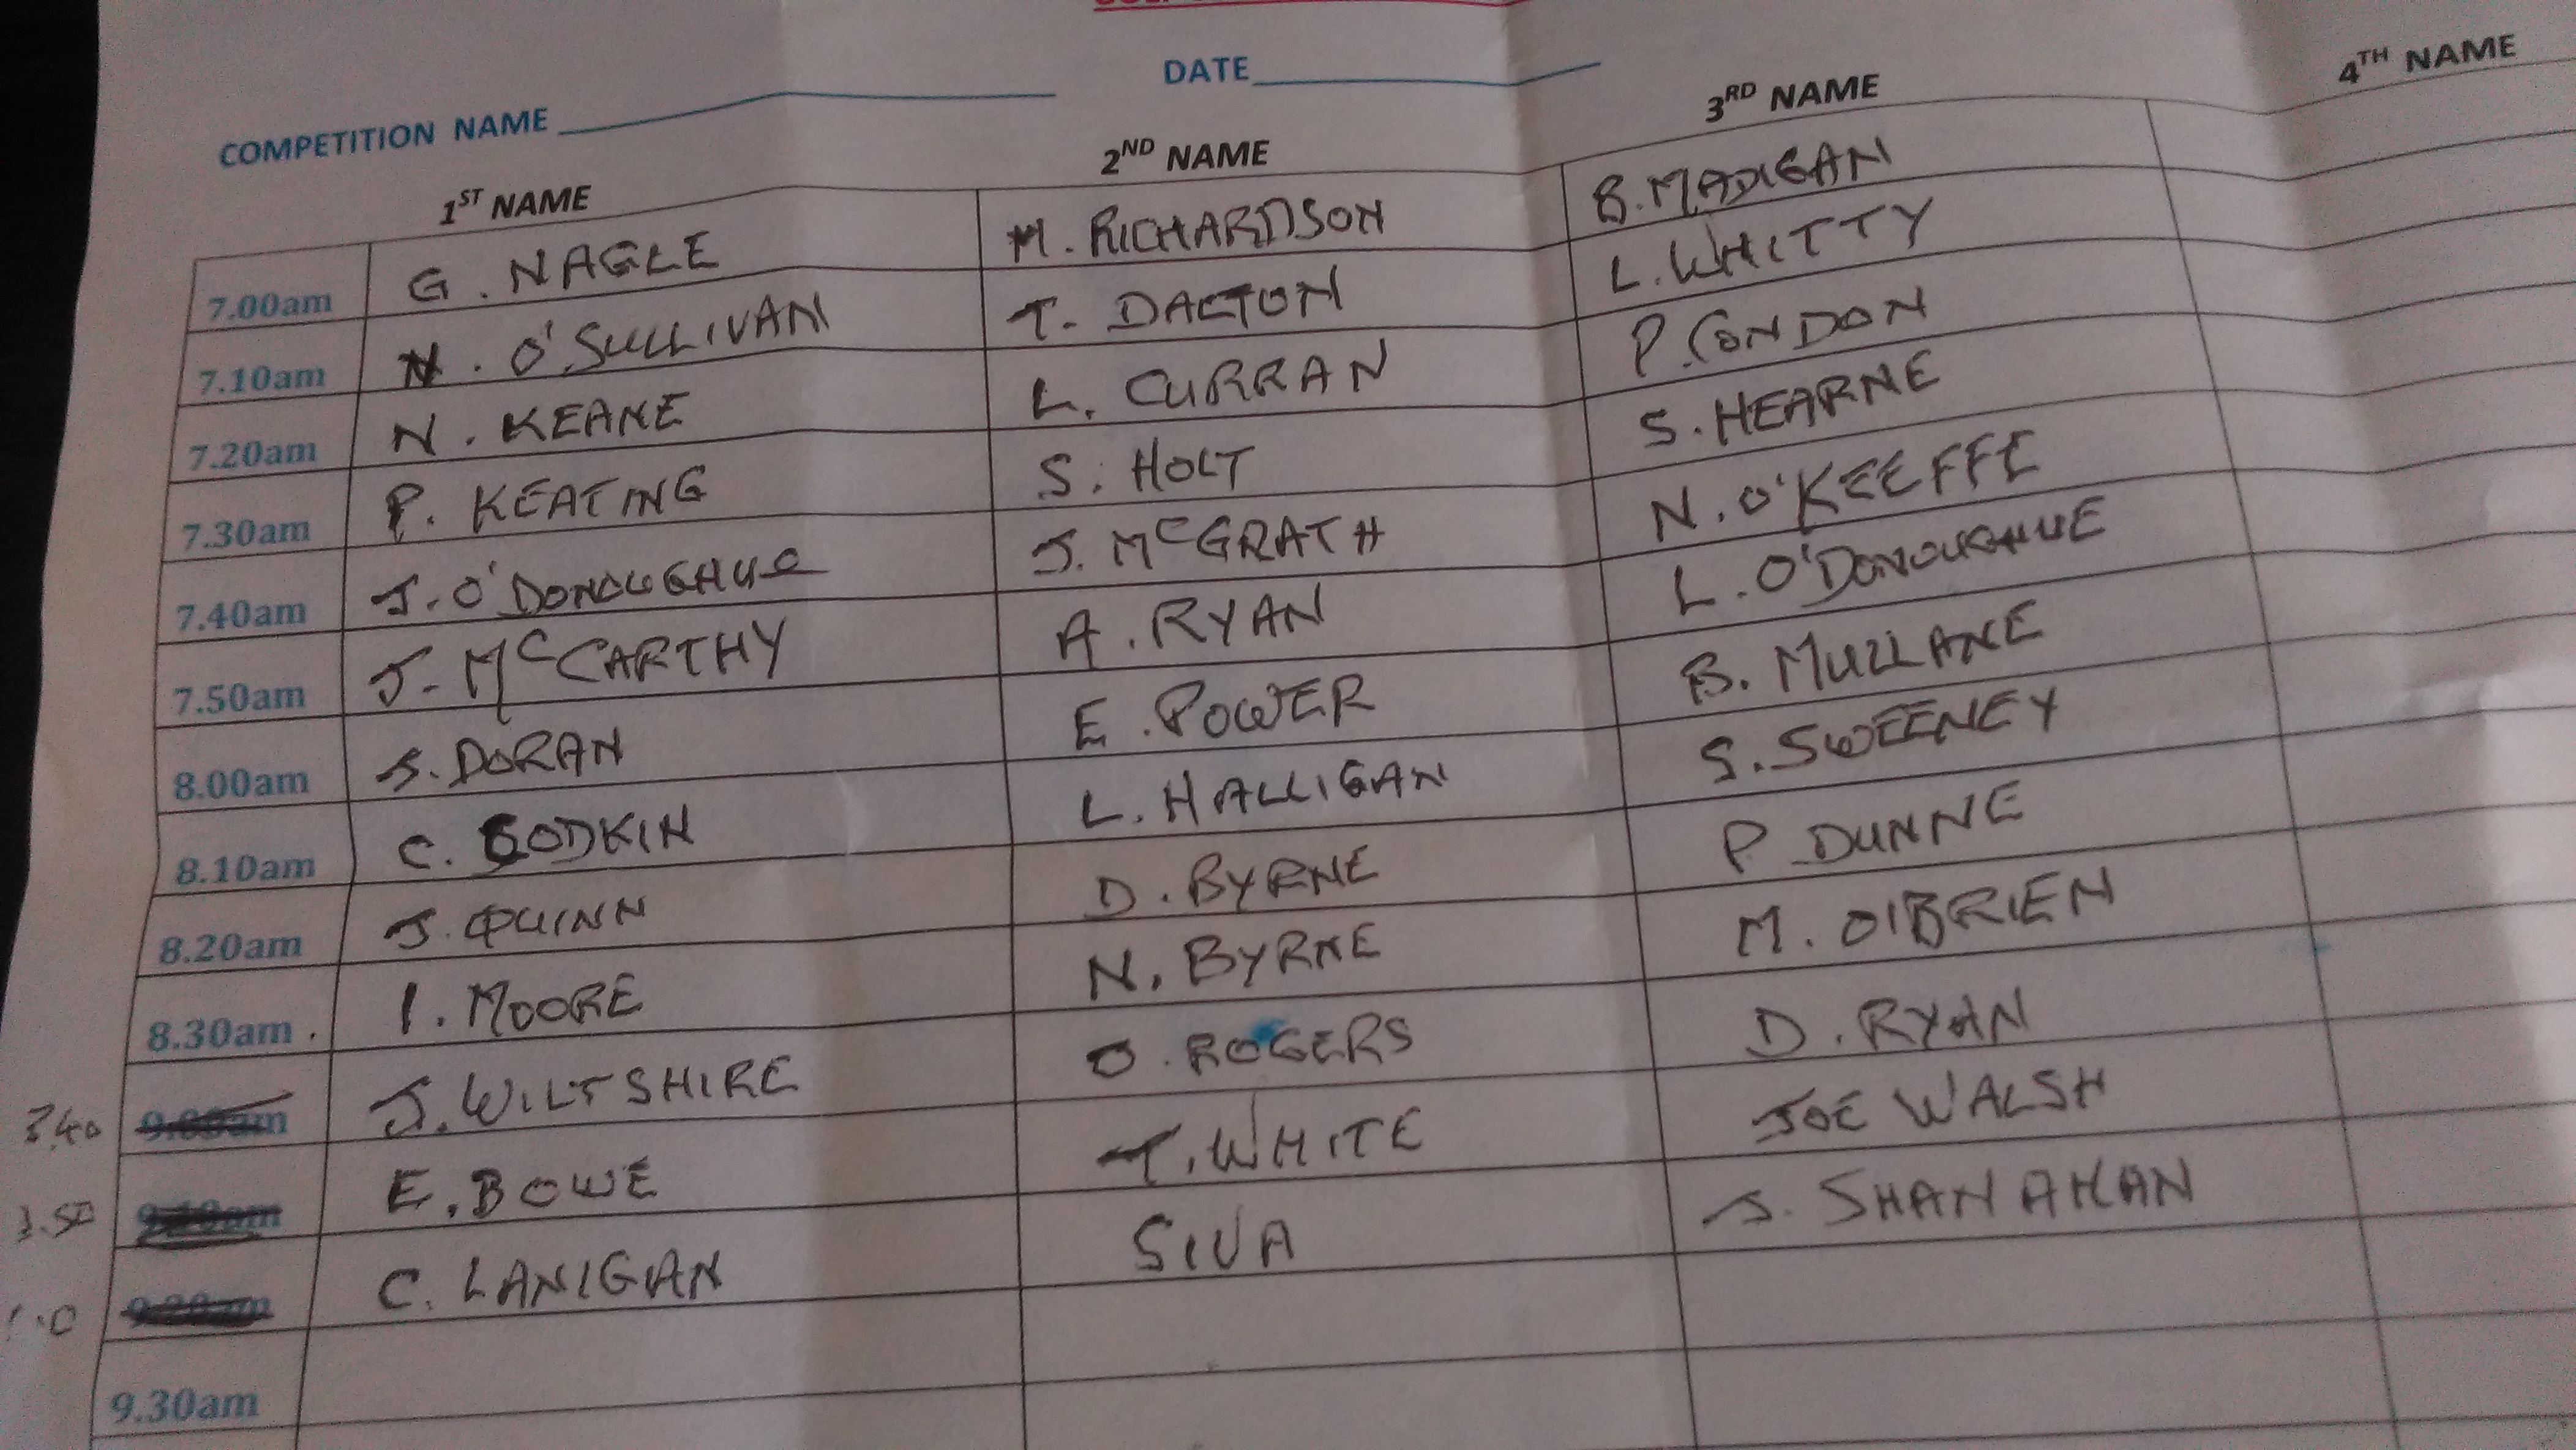 COMPETITION NAME DATE
1ST NAME 2ND NAME 3RD NAME 4TH NAME
7.00am G. NAGLE M. RICHARDSON B. MADIGAN
7.10am N. O'SULLIVAN T. DALTON L. WHITTY
7.20am N. KEANE L. CURRAN P. CONDON
7.30am P. KEATING S. HOLT S. HEARNE
7.40am J. O'DONOUGHUE J. McGRATH N. O'KEEFFE
7.50am J. McCARTHY A. RYAN L. O'DONOUGHUE
8.00am S. DORAN E. POWER B. MULLANE
8.10am C. GODKIN L. HALLIGAN S. SWEENEY
8.20am J. QUINN D. BYRNE P. DUNNE
8.30am. I. MOORE N. BYRNE M. O'BRIEN
9.00am J. WILTSHIRE O. ROGERS D. RYAN
9.10am E. BOWE T. WHITE JOE WALSH
9.20am C. LANIGAN SIVA J. SHANAHAN
9.30am